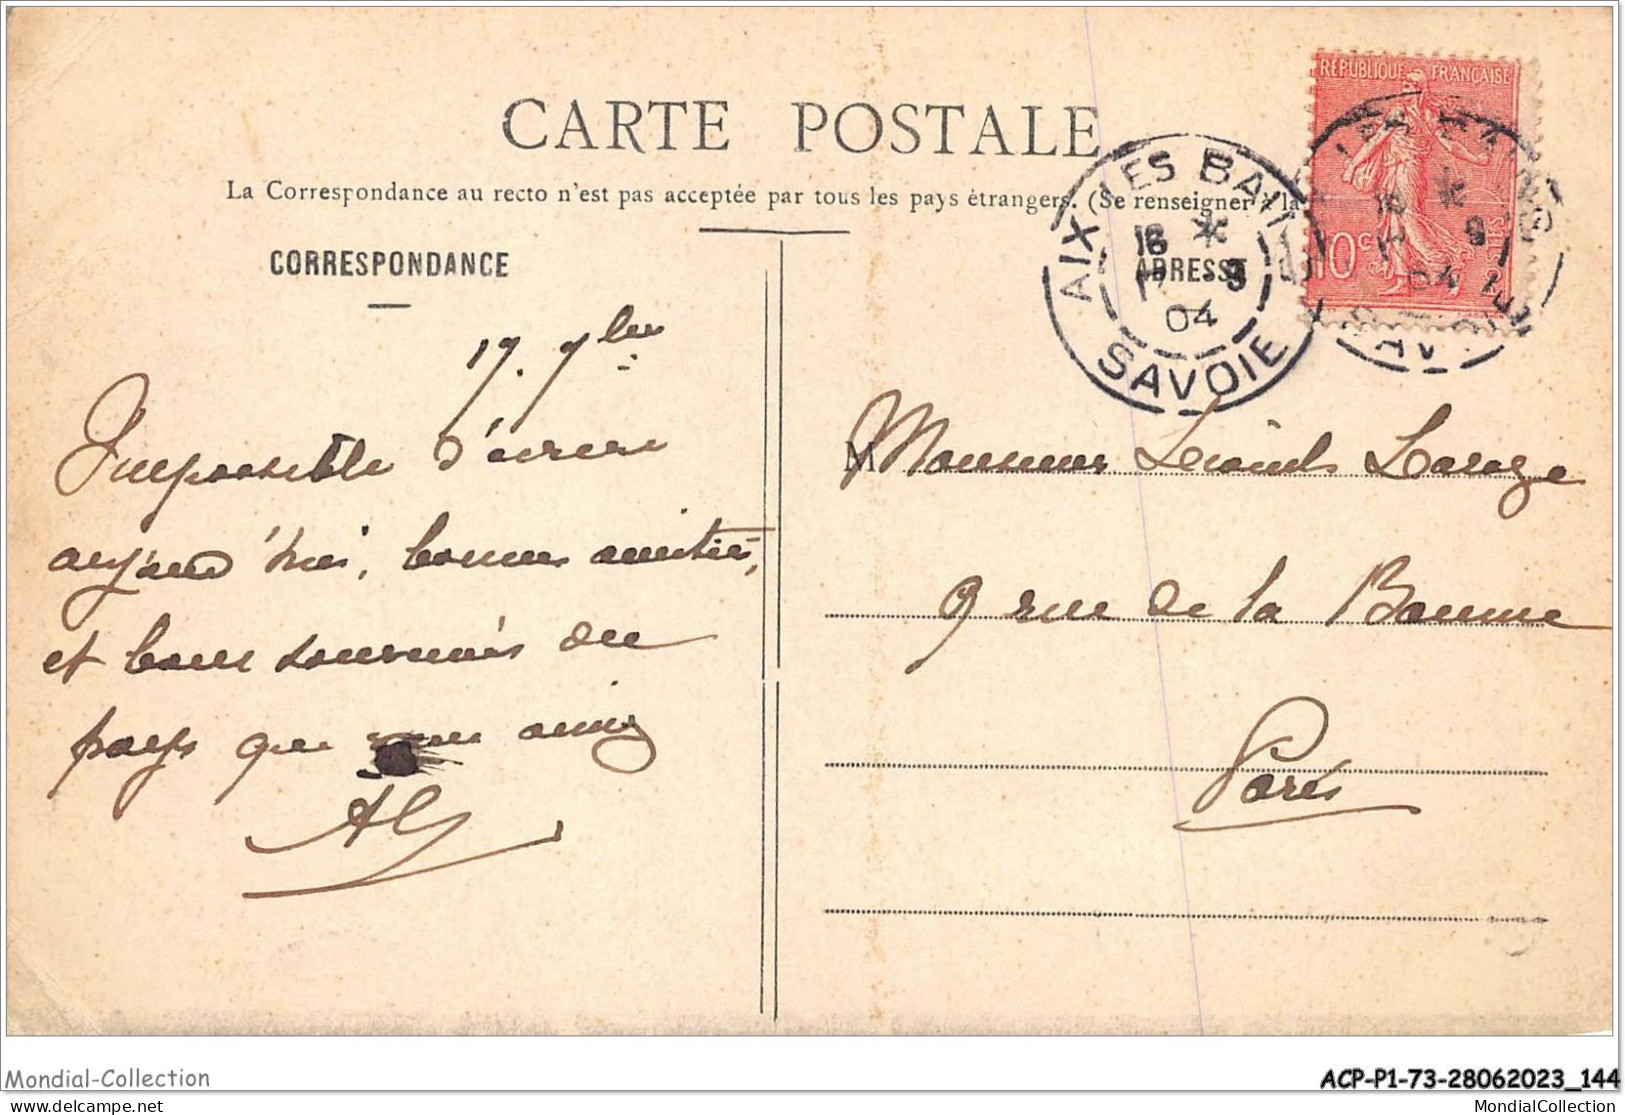 CARTE POSTALE
La Correspondance au recto n'est pas acceptée par tous les pays étrangers. (Se renseigner à la
CORRESPONDANCE
ADRESSE
RÉPUBLIQUE FRANÇAISE
10 c
POSTES
AIX-LES-BAINS
16 * 
17 -9
04
SAVOIE
17. 7bre
Impossible d'écrire
aujourd'hui, bonnes amitiés,
et bons souvenirs du
pays que vous aimez
M Monsieur
9 rue de la Baume
Paris
Mondial-Collection
ACP-P1-73-28062023_144
www.delcampe.net
MondialCollection